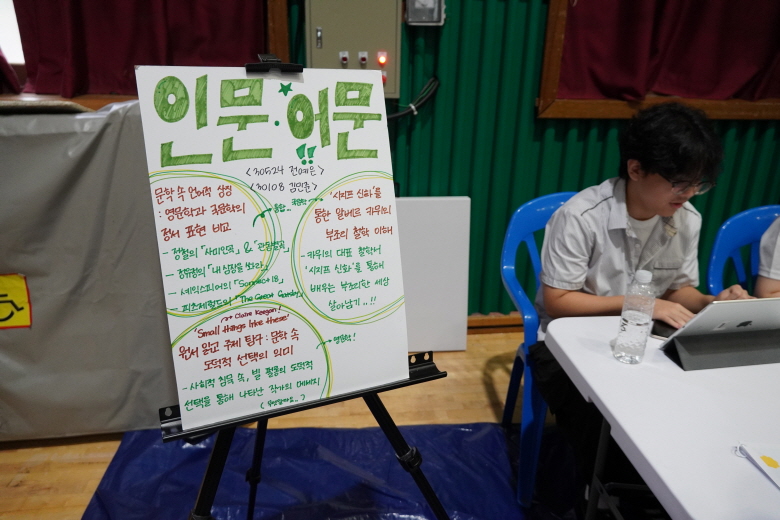 인문·어문
!!
<30524 전예은>
<30108 김민준>
문학 속 언어적 상징
: 영문학과 국문학의
정서 표현 비교
→ 통합..
- 정철의 「사미인곡」 & 「관동별곡」
- 셰익스피어의 「Sonnet 18」
- 피츠제럴드의 「The Great Gatsby」
'시지프 신화'를
통한 알베르 카뮈의
부조리 철학 이해
- 카뮈의 대표 철학서
'시지프 신화'를 통해
배우는 부조리한 세상
살아남기..!!
Claire Keegan!
'Small things like these'
원서 읽고 주제 탐구: 문학 속
도덕적 선택의 의미
→ 영문학!
- 사회적 침묵 속, 빌 펄롱의 도덕적
선택을 통해 나타난 작가의 메세지